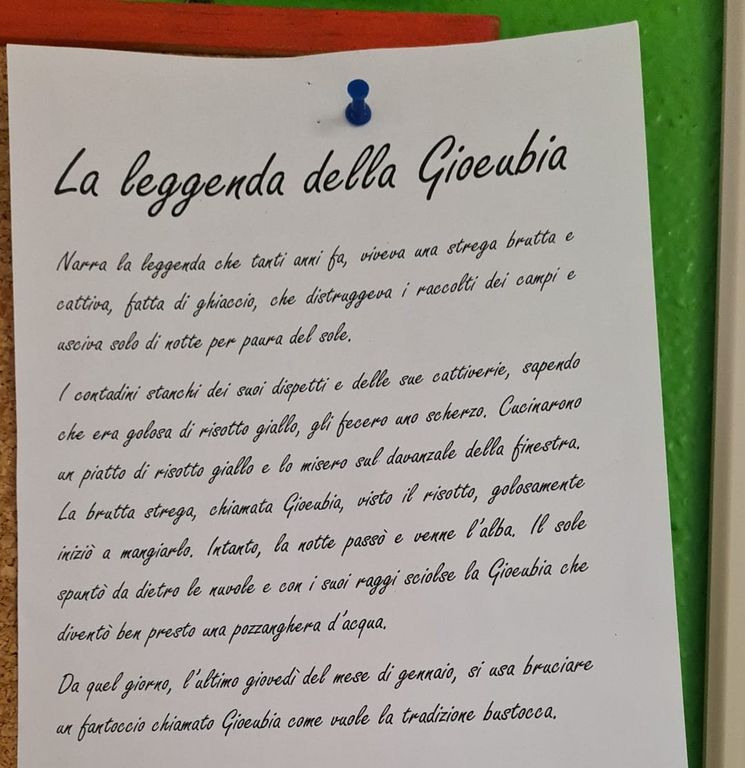 La leggenda della Gioeubia
Narra la leggenda che tanti anni fa, viveva una strega brutta e
cattiva, fatta di ghiaccio, che distruggeva i raccolti dei campi e
usciva solo di notte per paura del sole.
I contadini stanchi dei suoi dispetti e delle sue cattiverie, sapendo
che era golosa di risotto giallo, gli fecero uno scherzo. Cucinarono
un piatto di risotto giallo e lo misero sul davanzale della finestra.
La brutta strega, chiamata Gioeubia, visto il risotto, golosamente
iniziò a mangiarlo. Intanto, la notte passò e venne l'alba. Il sole
spuntò da dietro le nuvole e con i suoi raggi sciolse la Gioeubia che
diventò ben presto una pozzanghera d'acqua.
Da quel giorno, l'ultimo giovedì del mese di gennaio, si usa bruciare
un fantoccio chiamato Gioeubia come vuole la tradizione bustocca.